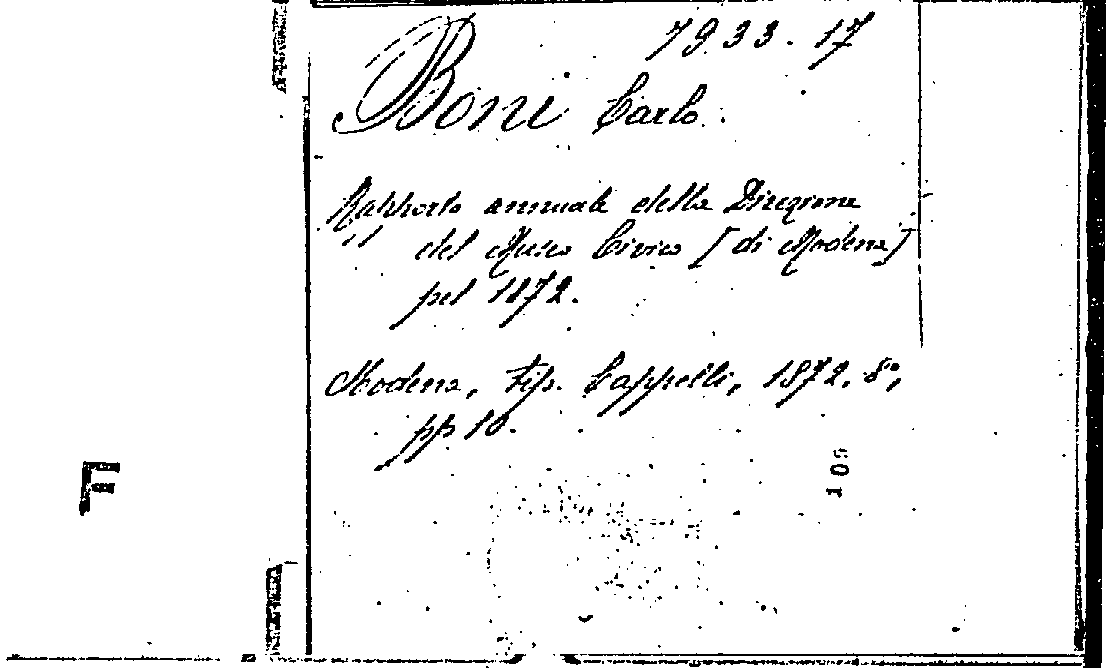 7933.17
Boni Carlo.
Rapporto annuale della Direzione
del Museo Civico [di Modena]
pel 1872.
Modena, tip. Cappelli, 1872. 8º,
pp. 10.
F